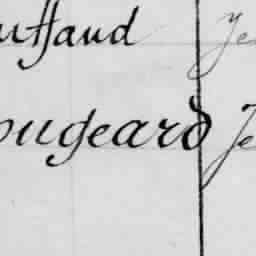 uffaud Je
ougeard Je